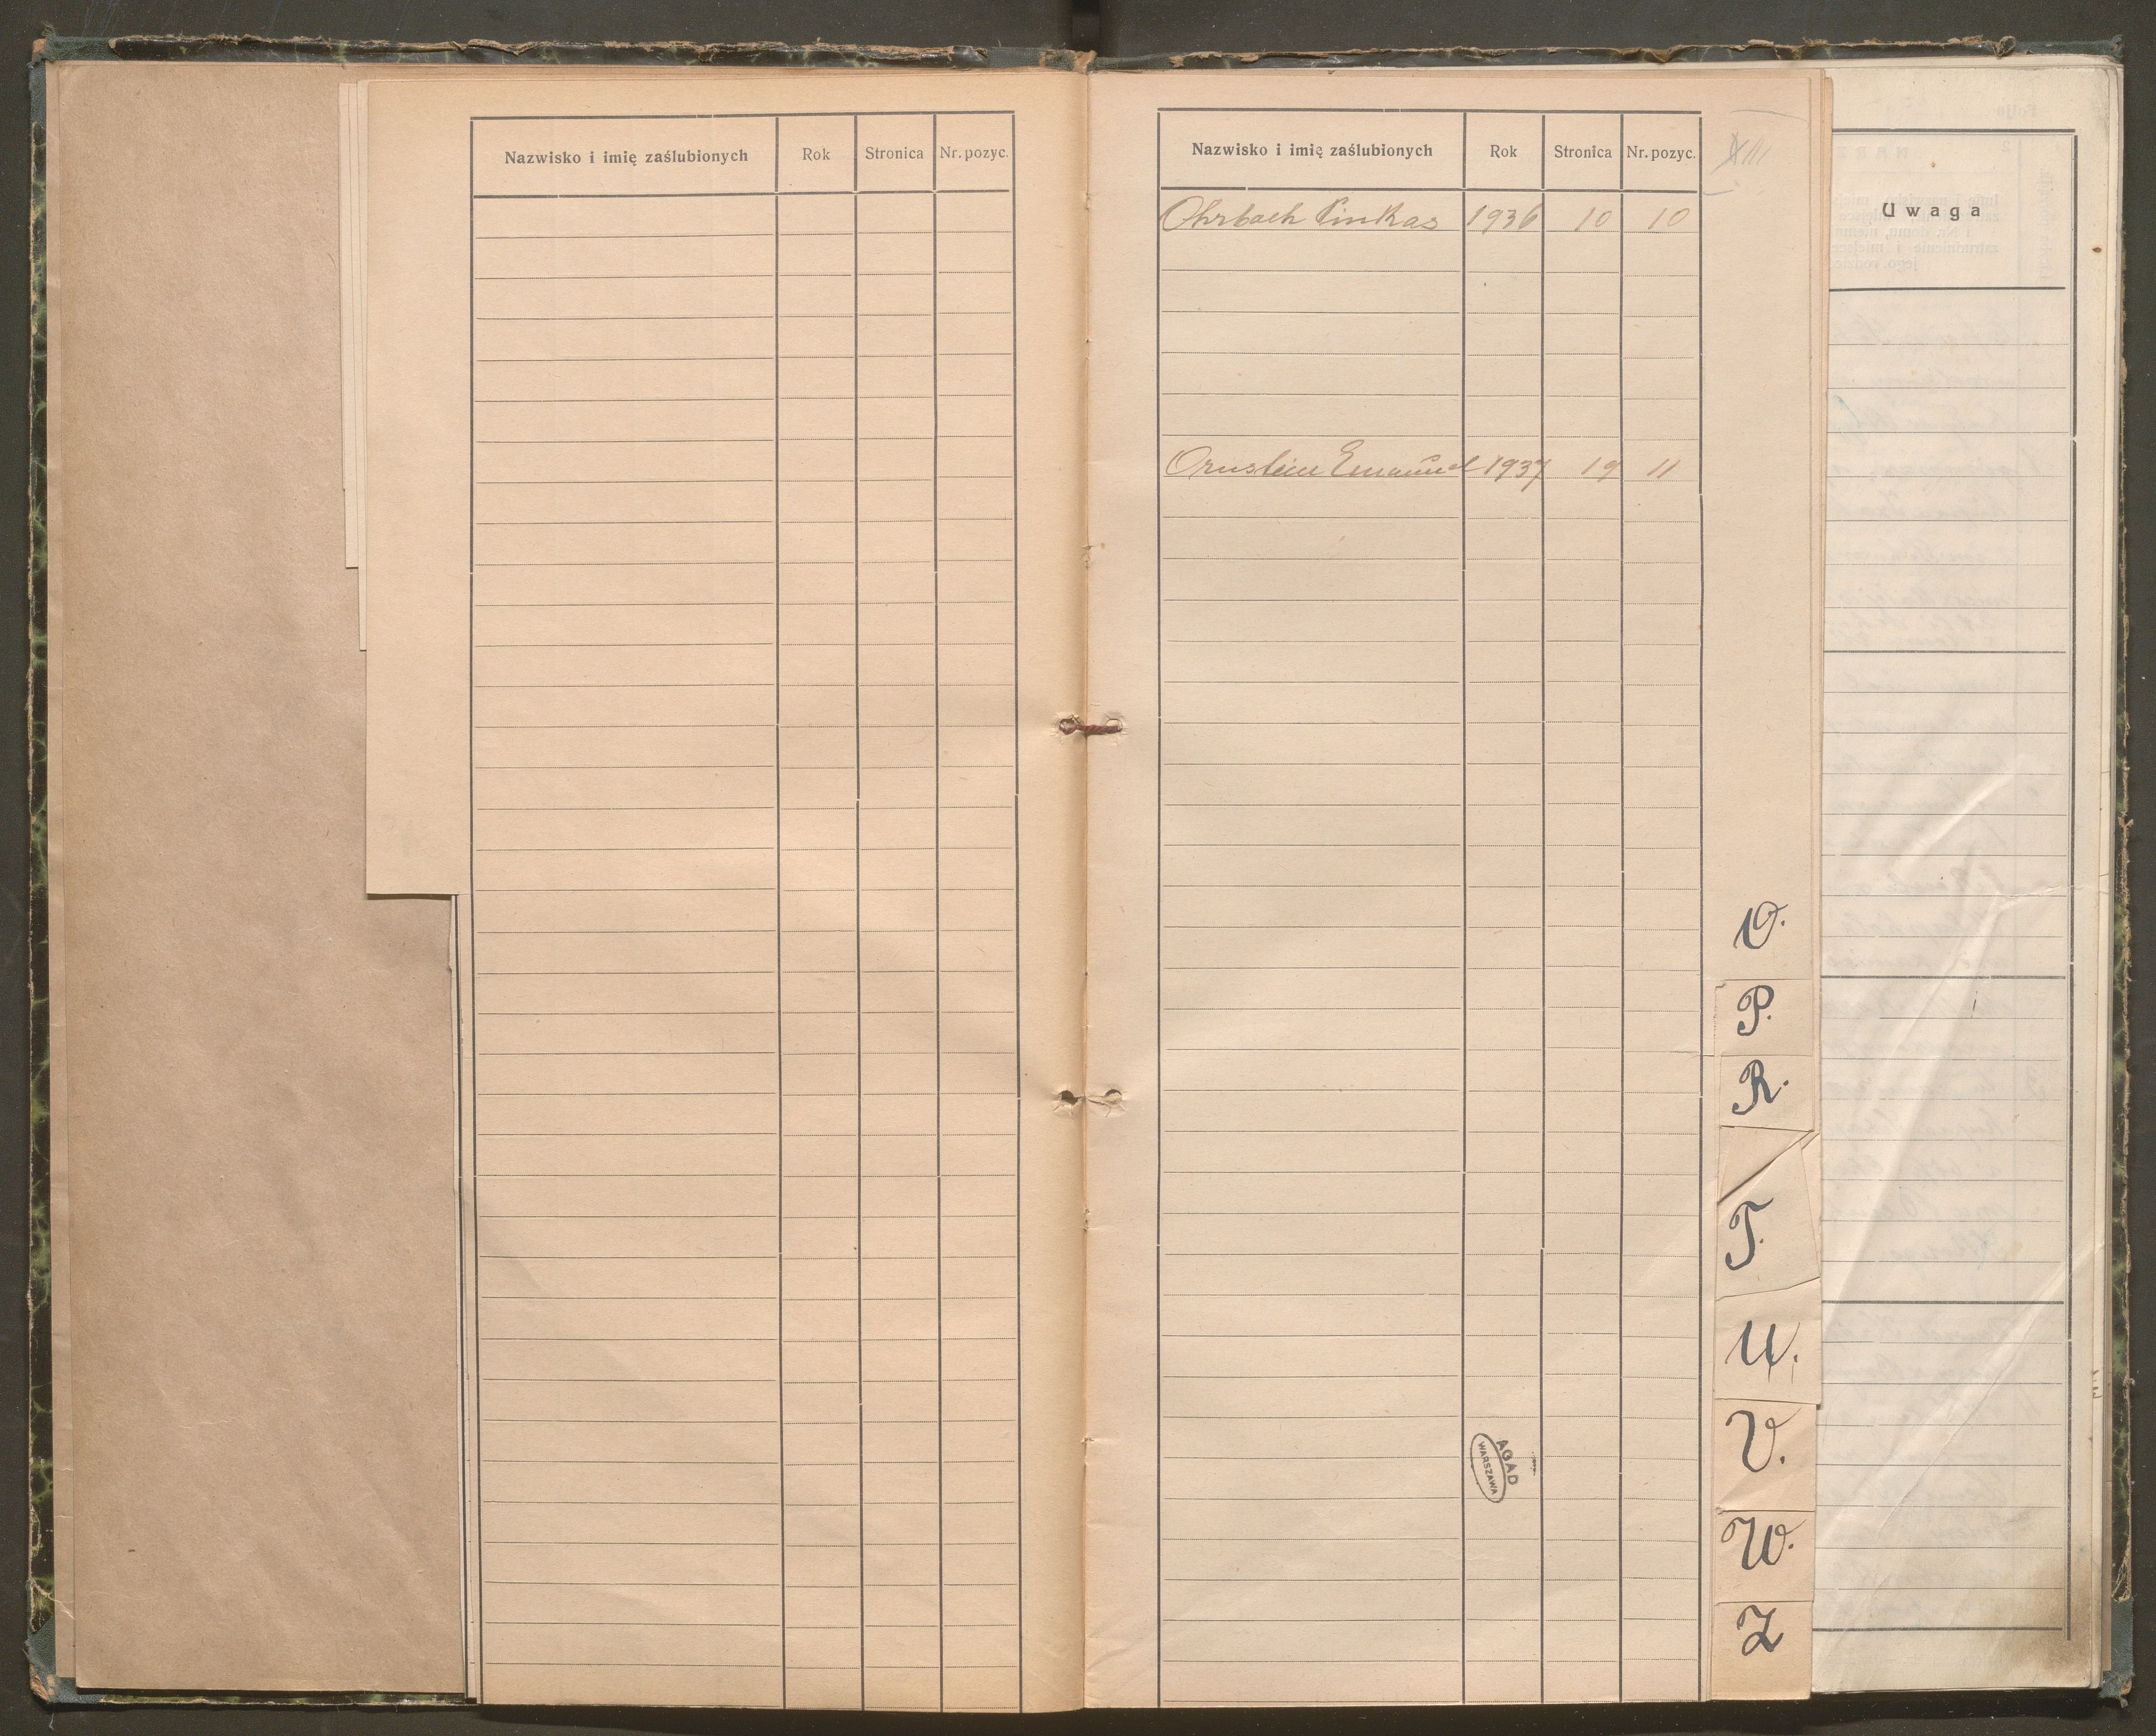 Nazwisko i imię zaślubionych Rok Stronica Nr. pozyc.
Nazwisko i imię zaślubionych Rok Stronica Nr. pozyc.
XIII
Uwaga
Ohrbach Pinkas 1936 10 10
Ornstein Emanuel 1937 19 11
O.
P.
R.
T.
U.
V.
W.
Z
AGAD
WARSZAWA